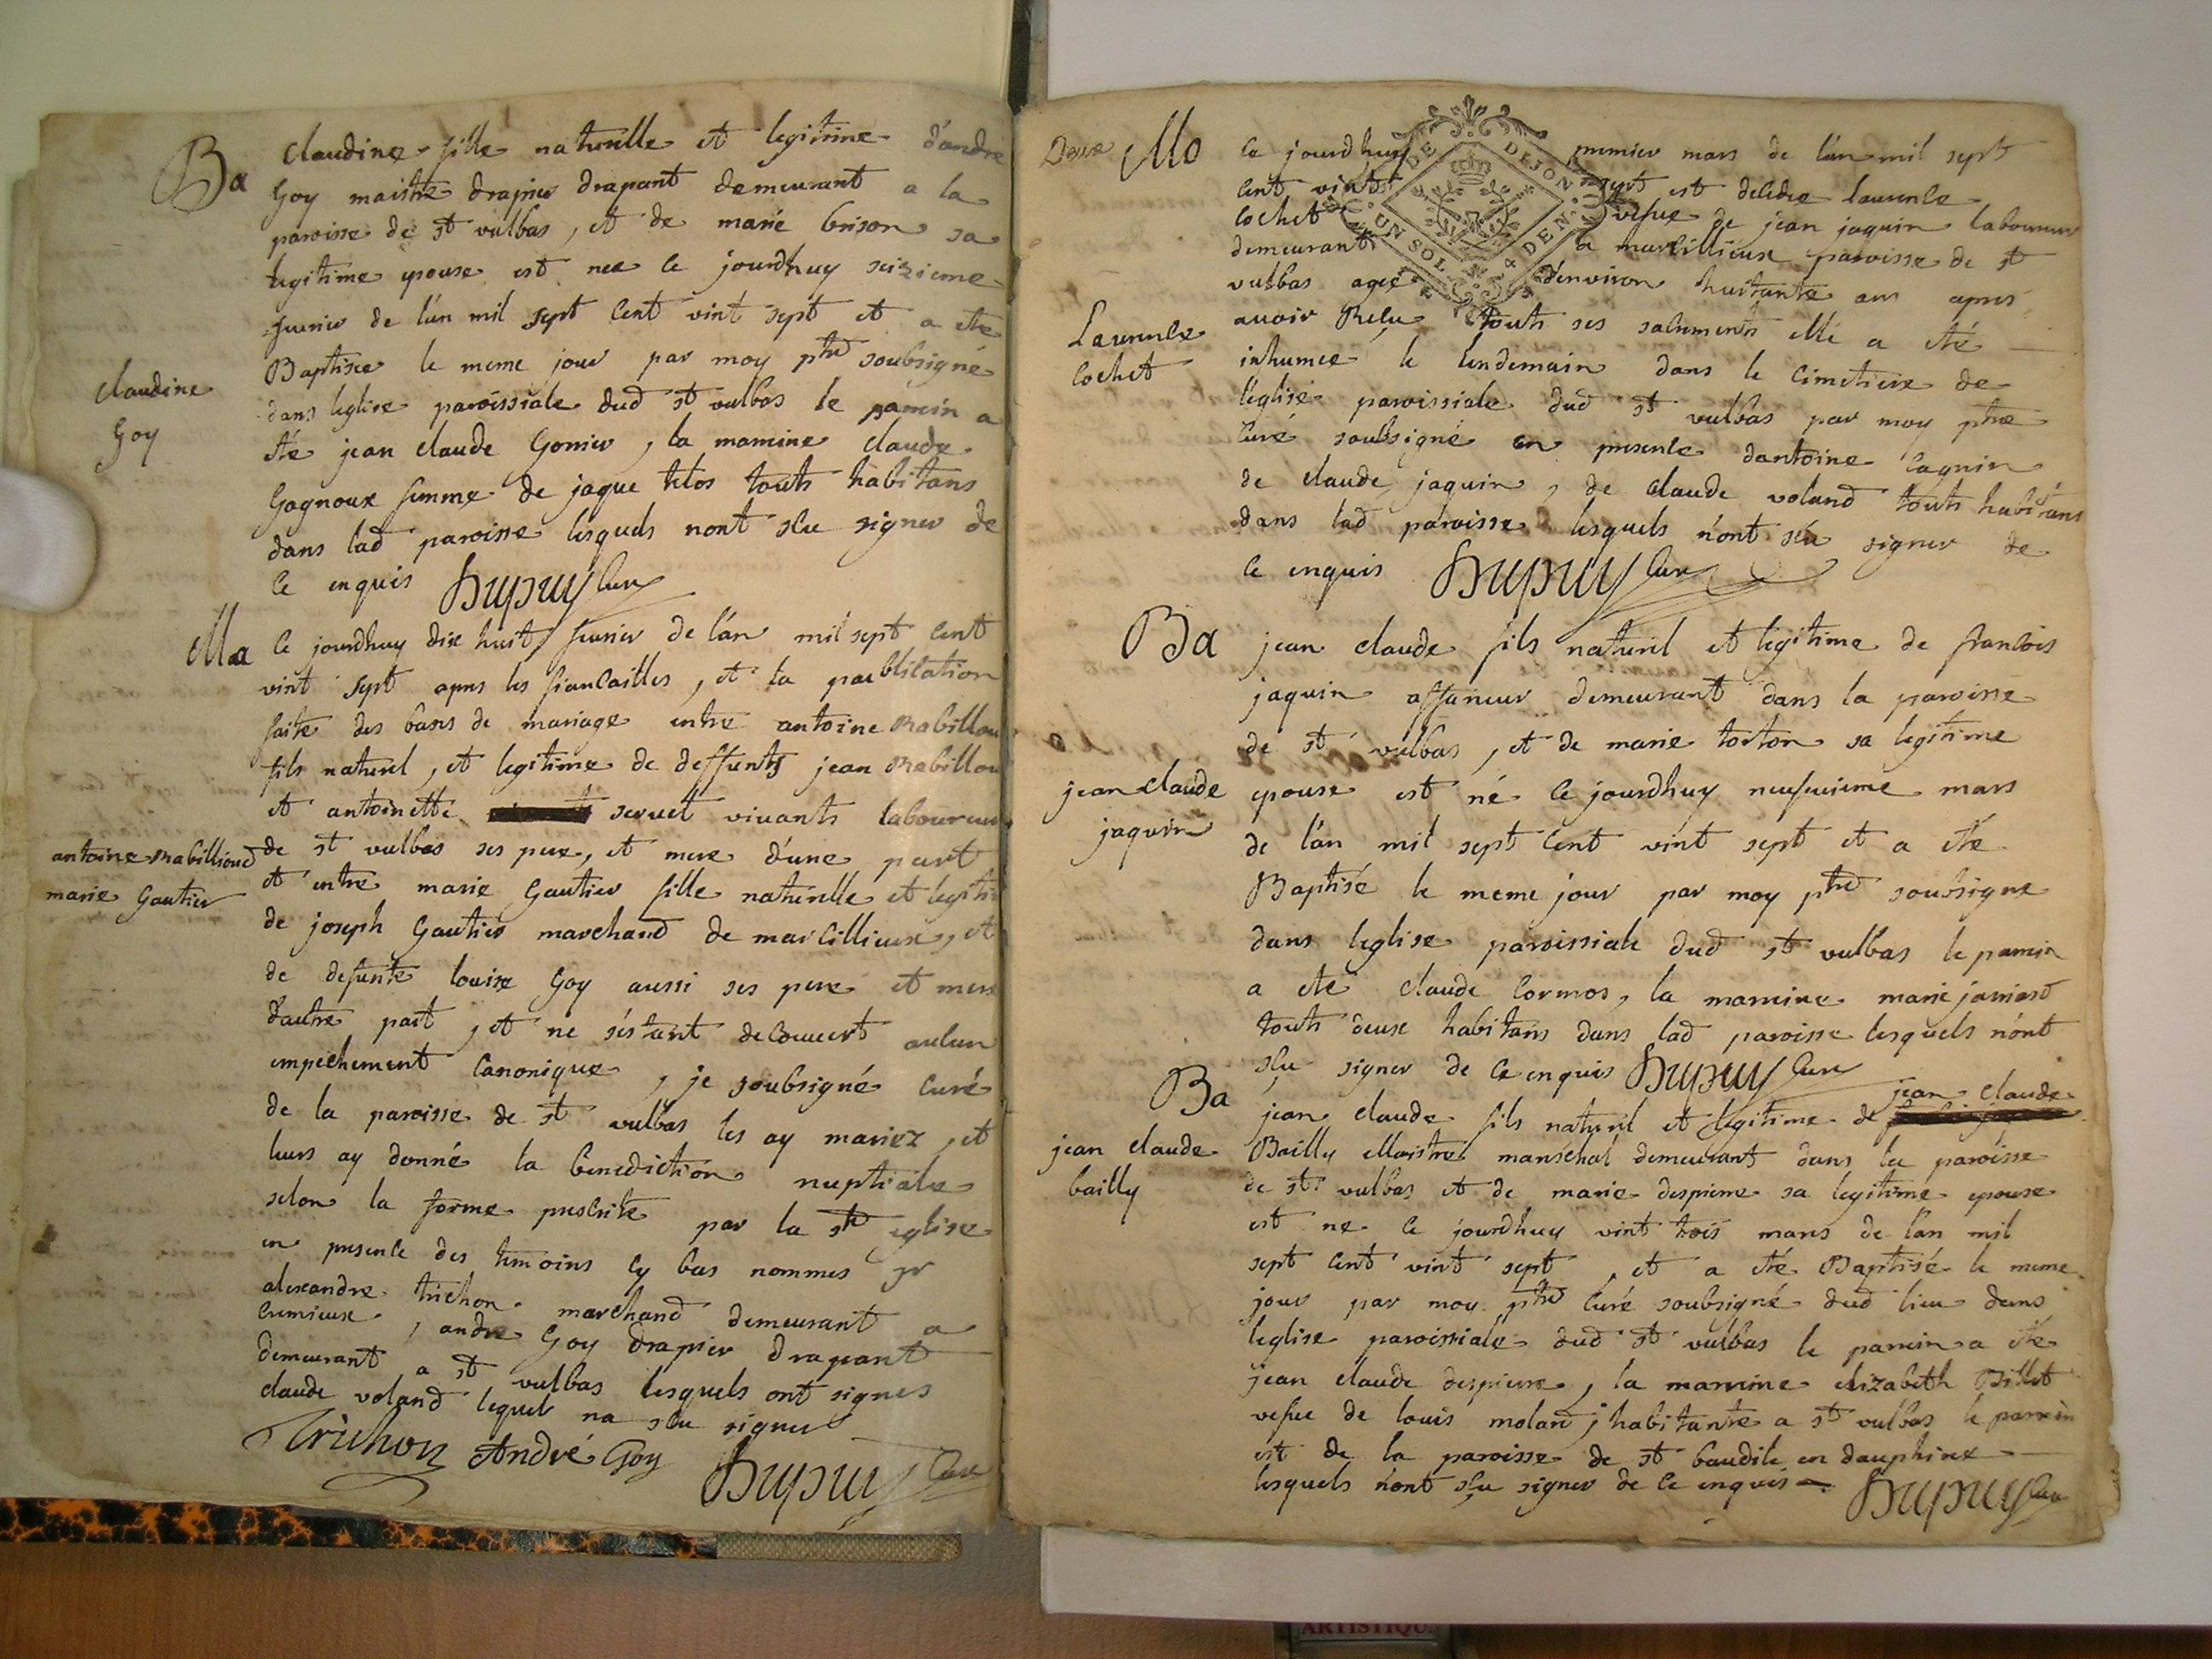 Ba
claudine fille naturelle et legitime d'andre
Goy maistre drapier drapant demeurant a la
paroisse de st vulbas, et de marie brison sa
legitime epouse est nee ce jourdhuy seizieme
feurier de l'an mil sept cent vint sept et a ete
Baptisee le meme jour par moy ptre soubsigné
dans leglise paroissiale dud st vulbas le parrin a
claudine
Goy
été jean claude Gonier, la marrine claude
Gagnoux femme de jaque telos touts habitans
dans lad paroisse lesquels nont sceu signer de
ce enquis Dupuy Cure
Ma
Ce jourdhuy dix huit feurier de l'an mil sept cent
vint sept apres les fiancailles, et la paublication
faite des bans de mariage entre antoine Rabillou
fils naturel, et legitime de deffunts jean Rabillou
et antoinette servet vivants laboureur
antoine Rabilloud
marie Gautier
de st vulbas ses pere, et mere d'une part
et entre marie Gautier fille naturelle et legiti
de joseph Gautier marchand de marcillieux, et
de defunte louise Goy aussi ses pere et mere
d'autre part, et ne s'estant decouvert aucun
empechement canonique, je soubsigné curé
de la paroisse de st vulbas les ay mariez, et
leurs ay donné la benediction nuptiale
selon la forme prescrite par la ste eglise
en presence des temoins cy bas nommes sr
alexandre trichon marchand demeurant a
cremieux, andre Goy drapier drapant
demeurant a st vulbas lesquels ont signes
claude voland lequel na sceu signer
Trichon André Goy Dupuy Cure
Deux
Mo
Ce jourdhuy premier mars de l'an mil sept
cent vint sept est decedee laurence
cochet vefue de jean jaquin laboureur
demeurant a marcillieux paroisse de st
vulbas agée d'environ huitante ans apres
DEJON
UN SOL
4 DEN.
Laurence
cochet
avoir Reçu touts ses sacrements elle a été
inhumee le lendemain dans le cimetiere de
l'eglise paroissiale dud st vulbas par moy ptre
curé soubsigné en presence dantoine cagnin
de claude jaquin, de claude voland touts habitans
dans lad paroisse lesquels n'ont sceu signer de
ce enquis Dupuy Cure
Ba
jean claude fils naturel et legitime de francois
jaquin affaneur demeurant dans la paroisse
de st vulbas, et de marie torton sa legitime
jean claude
jaquin
epouse est né ce jourdhuy neufvieme mars
de l'an mil sept cent vint sept et a eté
Baptisé le meme jour par moy ptre soubsigne
dans leglise paroissiale dud st vulbas le parrin
a eté claude cormos, la marrine marie
touts deux habitans dans lad paroisse lesquels n'ont
sceu signer de ce enquis Dupuy Cure
Ba
jean claude fils naturel et legitime de jean claude
jean claude
bailly
Bailly Maistre maréchal demeurant dans la paroisse
de st vulbas et de marie despierre sa legitime epouse
est ne ce jourdhuy vint trois mars de l'an mil
sept cent vint sept, et a eté Baptisé le meme
jour par moy ptre curé soubsigné dud lieu dans
leglise paroissiale dud st vulbas le parrin a eté
jean claude despierre, la marrine elizabeth Billet
vefue de louis molard, habitante a st vulbas le parrein
est de la paroisse de st baudile en dauphine
lesquels n'ont sceu signer de ce enquis Dupuy Cure
ARTISTIQU